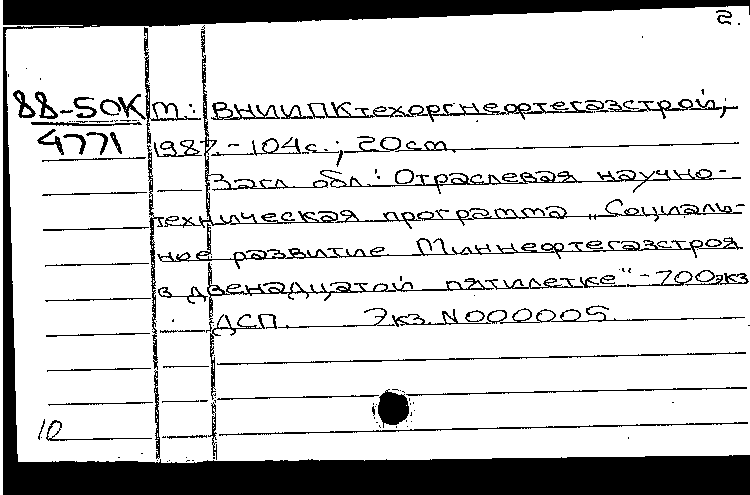 2.
88-50К М.: ВНИИПКтехоргнефтегазстрой,
4771 1987.-104с.; 20см.
Загл. обл.: Отраслевая научно-
техническая программа „Социаль-
ное развитие Миннефтегазстроя
в двенадцатой пятилетке".-700экз
ДСП. Экз. N000005.
10